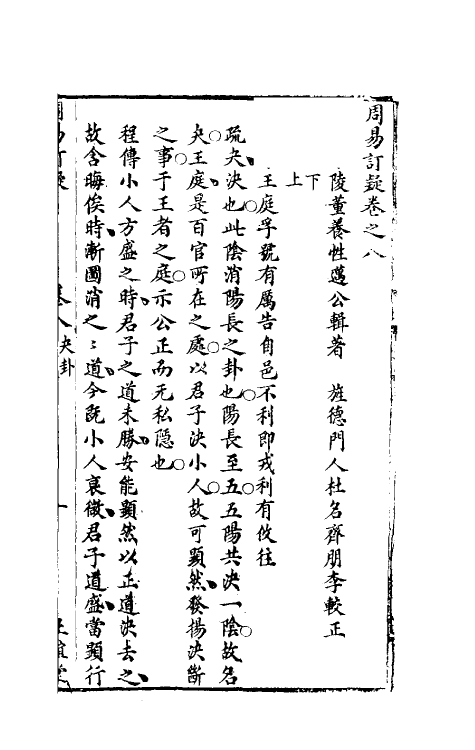 周易訂疑卷之八
陵董養性邁公輯著　旌德門人杜名齊朋李較正
下
上
王庭孚號有厲告自邑不利即戎利有攸往
疏夬決也此陰消陽長之卦也陽長至五五陽共決一陰故名
夬王庭是百官所在之處以君子決小人故可顯然發揚決斷
之事于王者之庭示公正而无私隱也
程傳小人方盛之時君子之道未勝安能顯然以正道決去之
故含晦俟時漸圖消之〻道今旣小人衰微君子道盛當顯行
卷八夬卦
一
正誼堂